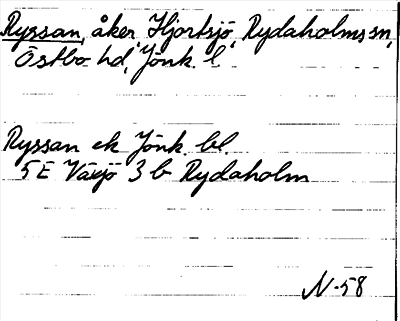 Ryssan, åker, Hjortsjö, Rydaholms sn,
Östbo hd, Jönk. l.
Ryssan ek Jönk. bl.
5E Växjö 3b Rydaholm
N-58